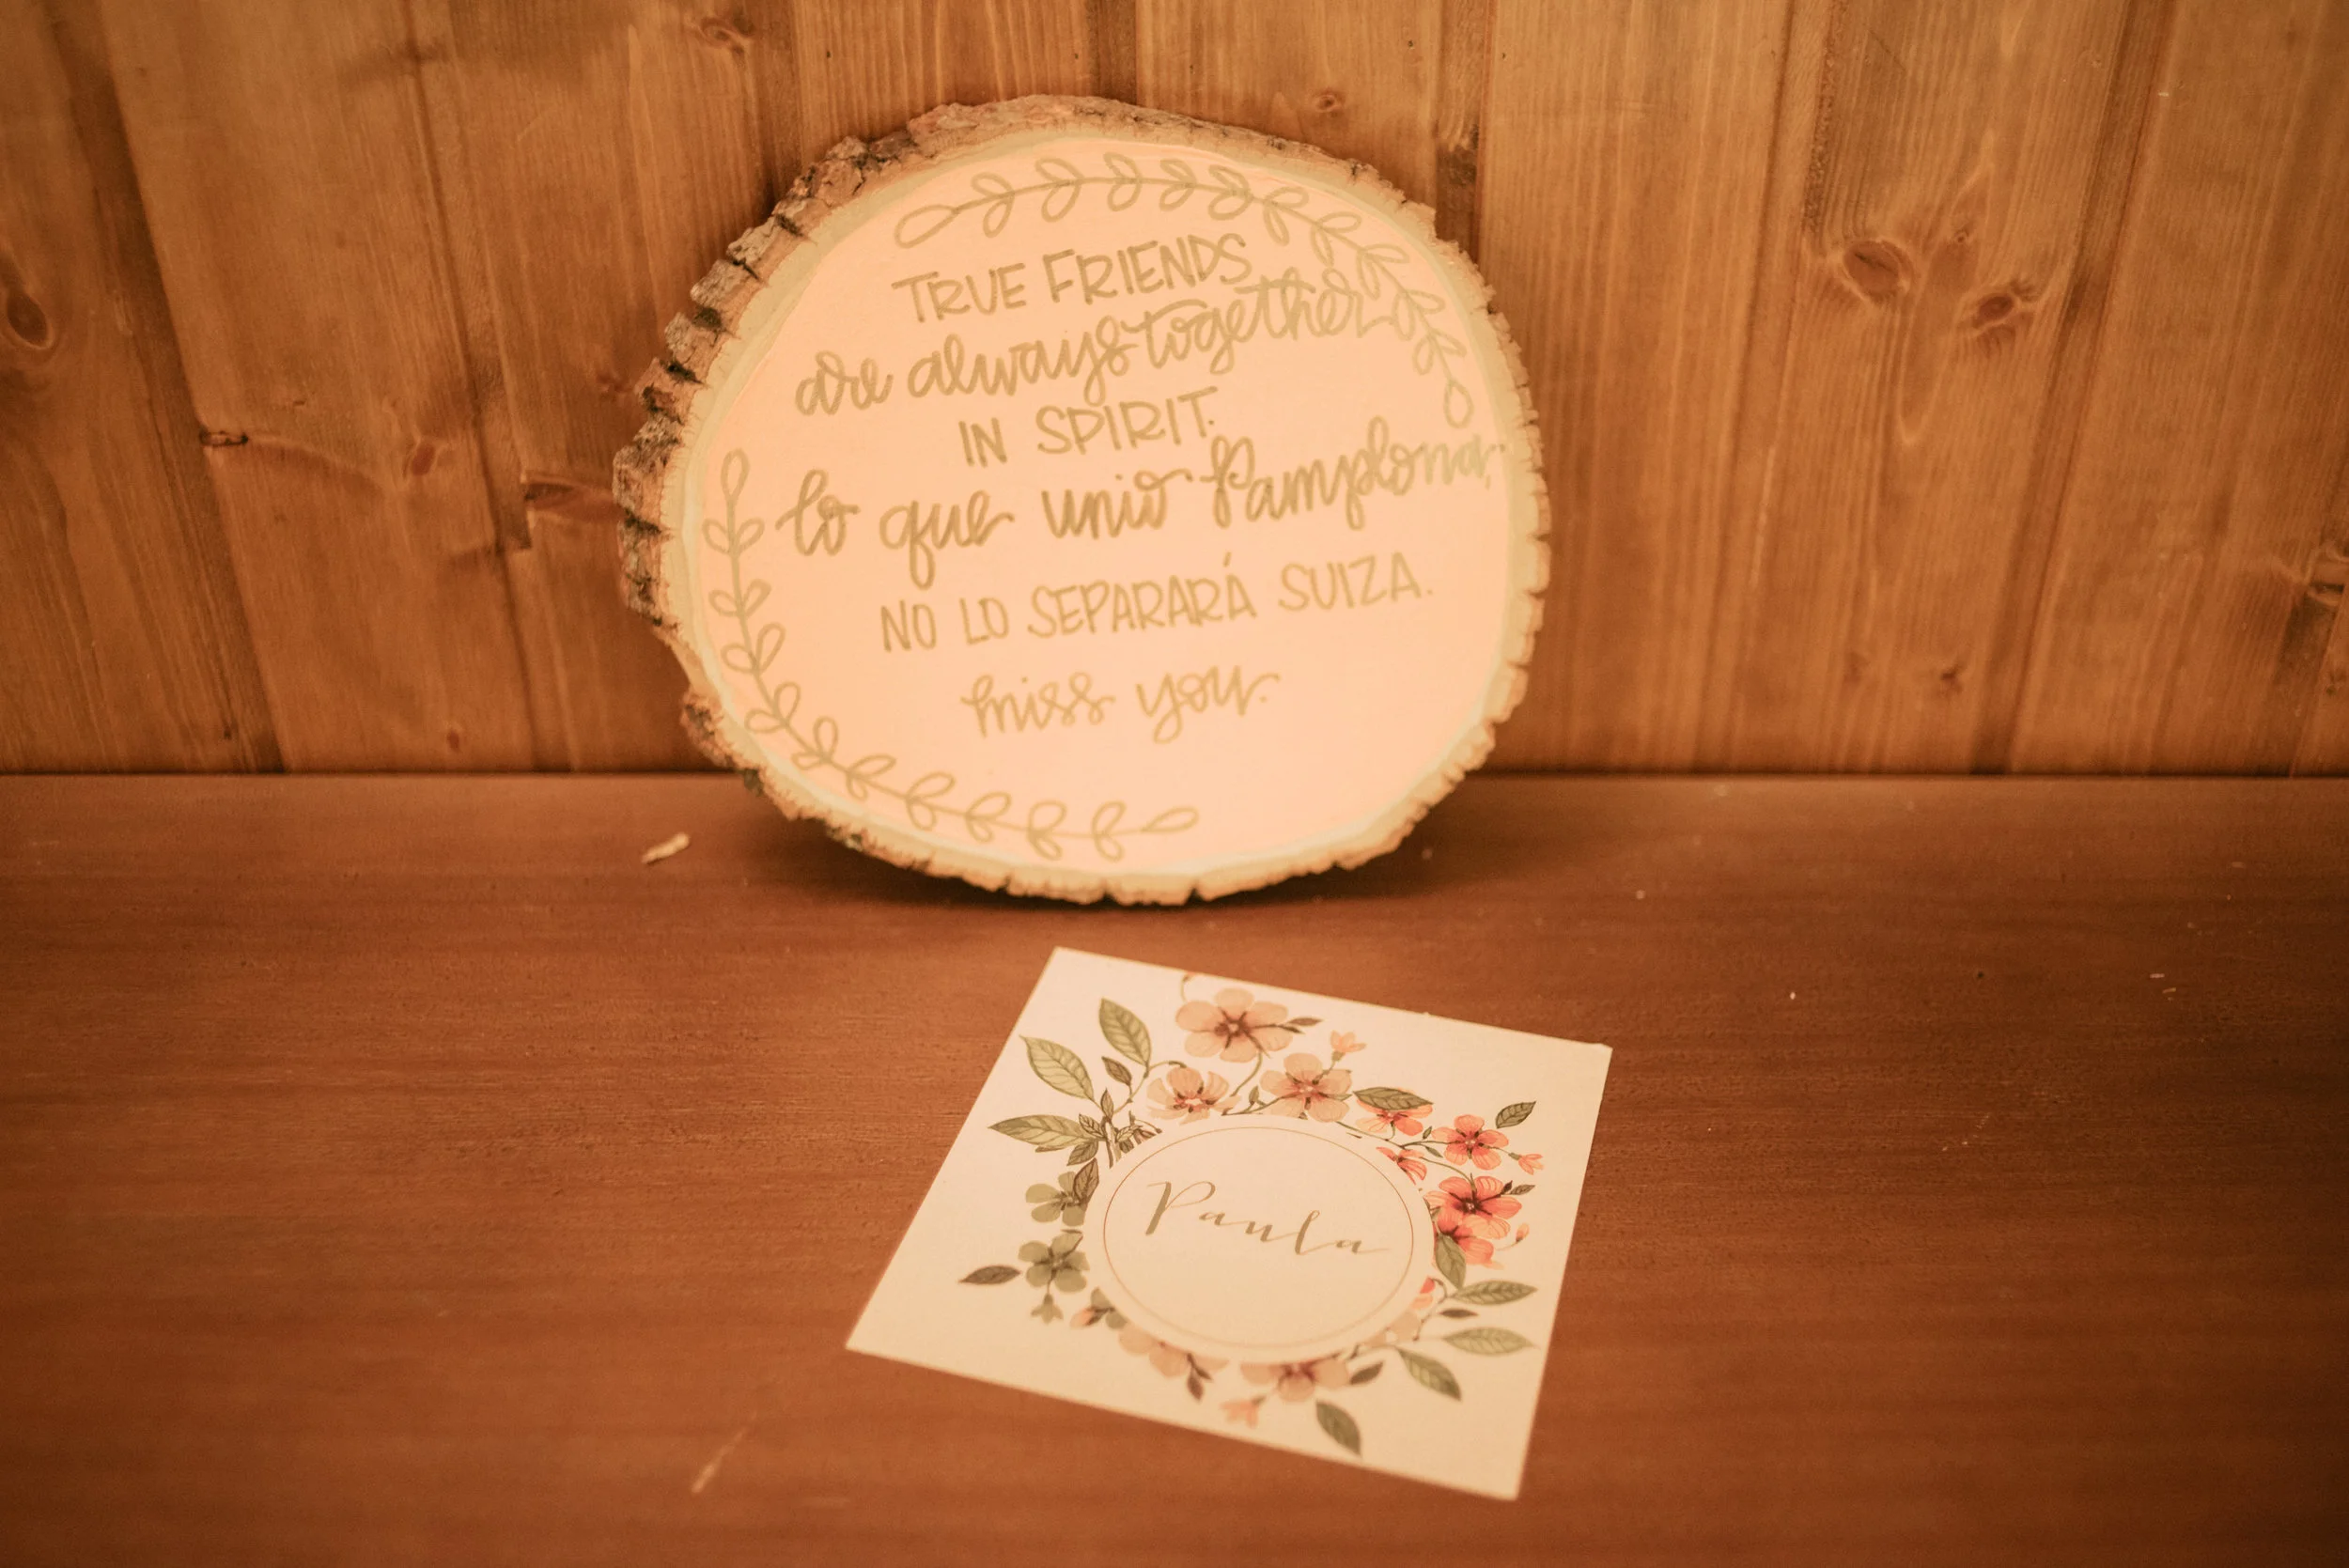 TRUE FRIENDS
are always together
IN SPIRIT.
lo que unió Pamplona,
NO LO SEPARARÁ SUIZA.
miss you.
Paula